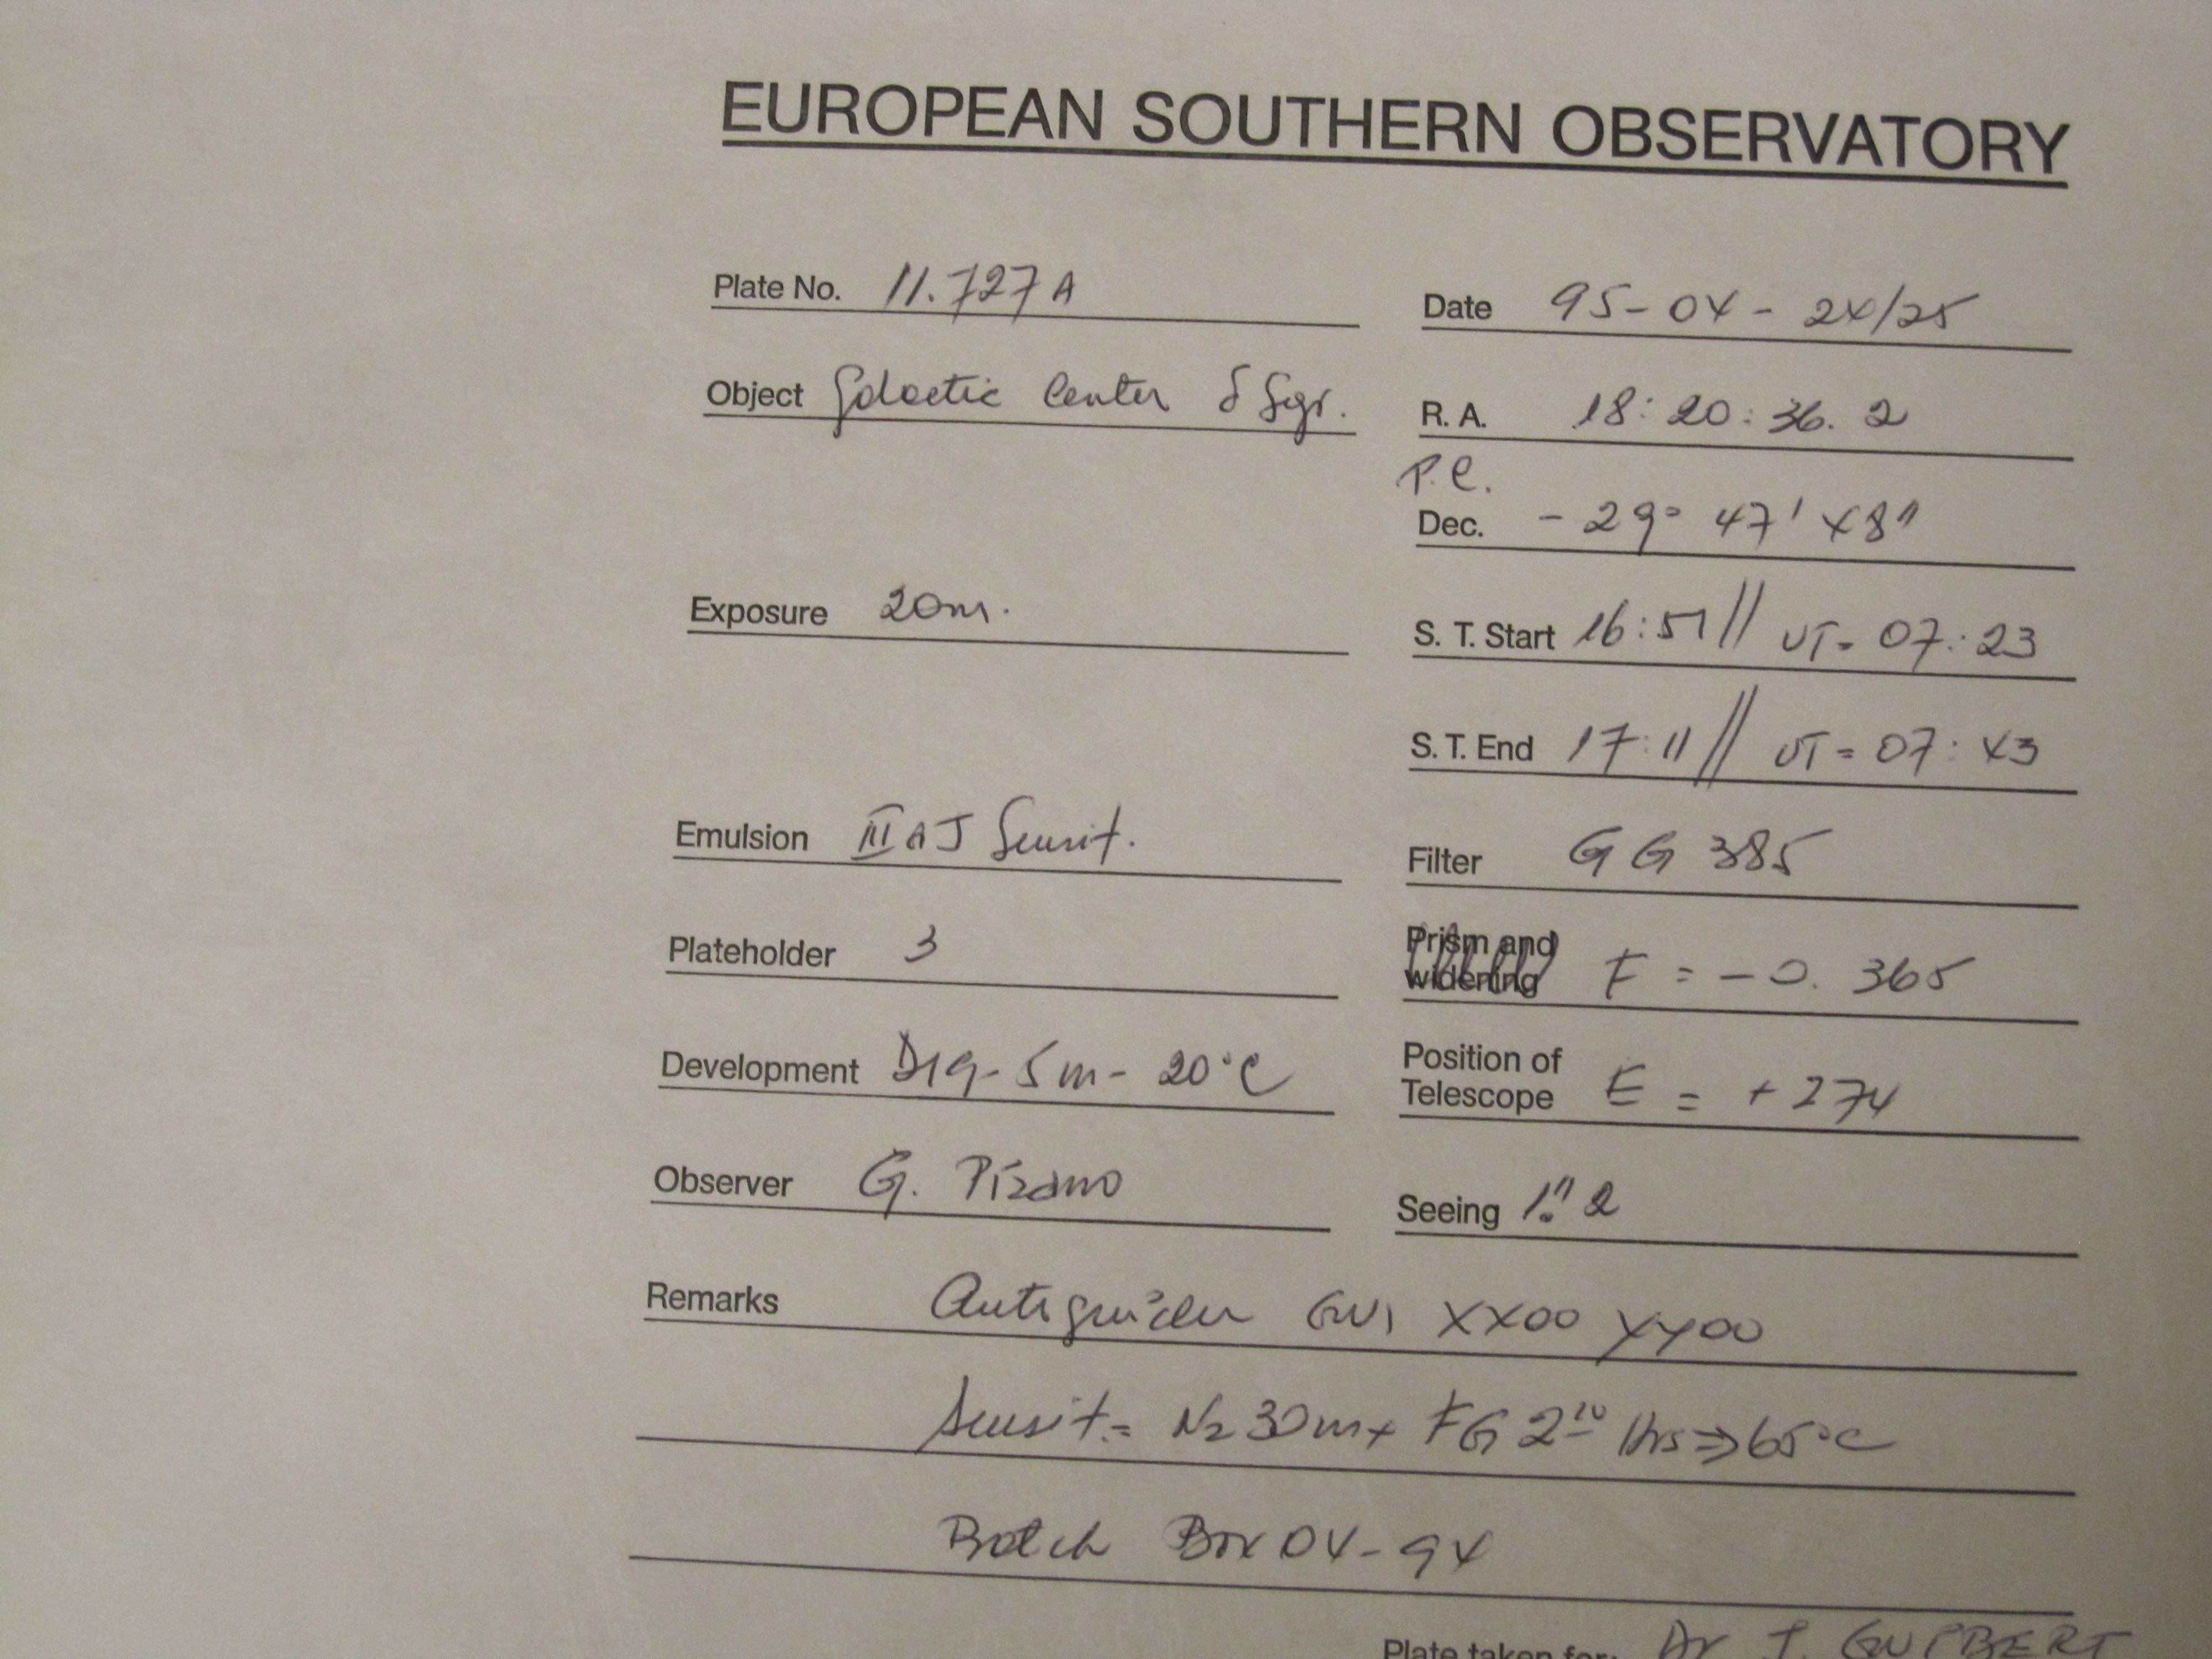 EUROPEAN SOUTHERN OBSERVATORY
Plate No. 11.727 A
Date 95-04-24/25
Object Galactic Center δ Sgr.
R. A. 18:20:36.2
P.C.
Dec. -29° 47' 48"
Exposure 20m.
S. T. Start 16:51 // UT= 07:23
S. T. End 17:11 // UT= 07:43
Emulsion III A J Sensit.
Filter GG 385
Plateholder 3
Prism and widening F = -0.365
Development D19-5m-20°C
Position of Telescope E = +274
Observer G. Pizarro
Seeing 1."2
Remarks Autoguider GW1 XX00 YY00
Sensit.= N2 30m+ FG 2 Hrs ⇒ 65°C
Batch Box 04-94
Plate taken for: Dr J.